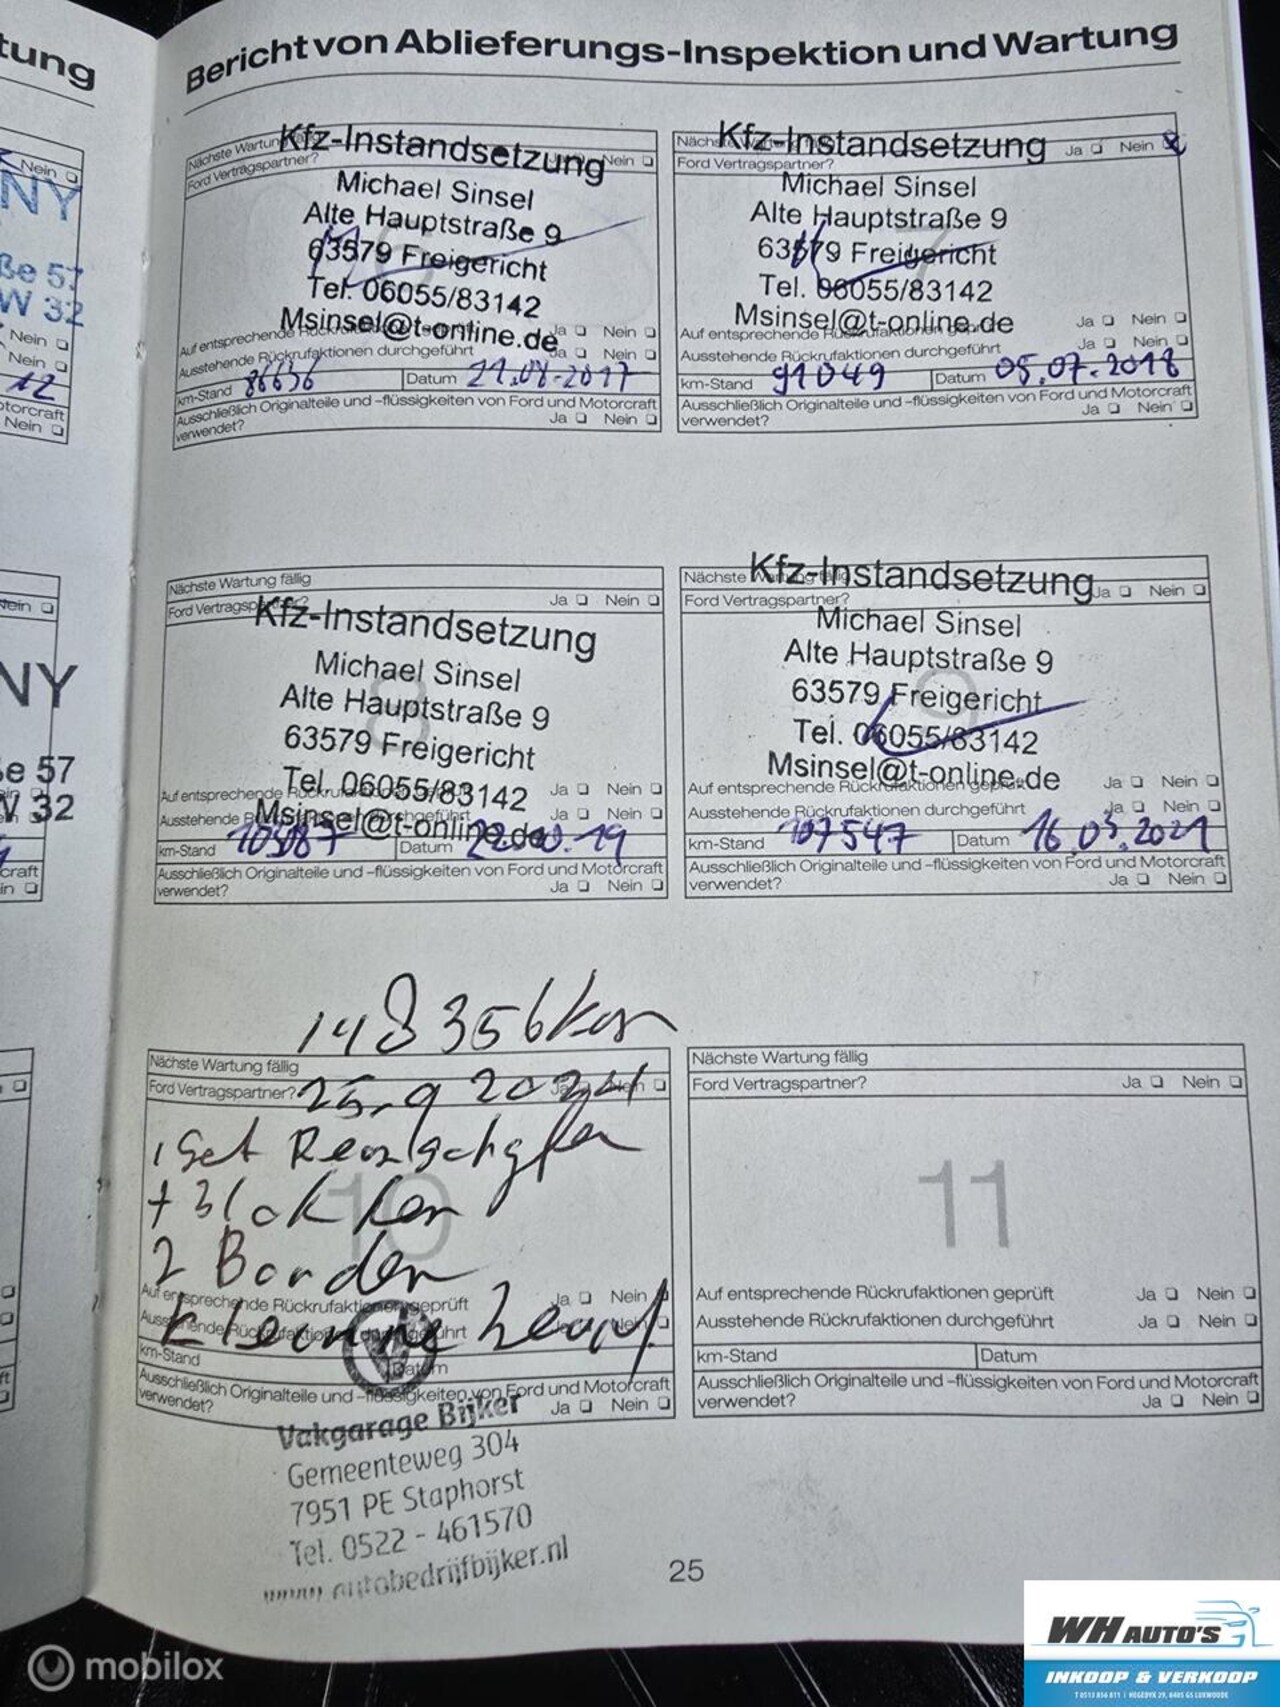 tung
Nein
NY
ße 57
W 32
Nein
Nein
12
otorcraft
Nein
Nein
NY
e 57
W 32
craft
in
Bericht von Ablieferungs-Inspektion und Wartung
Nächste Wartung
Ford Vertragspartner?
Nein
Kfz-Instandsetzung
Michael Sinsel
Alte Hauptstraße 9
63579 Freigericht
Tel. 06055/83142
Msinsel@t-online.de
6
Auf entsprechende Ja Nein
Ausstehende Rückrufaktionen durchgeführt Ja Nein
km-Stand 86636 Datum 21.08.2017
Ausschließlich Originalteile und –flüssigkeiten von Ford und Motorcraft
verwendet? Ja Nein
Ford Vertragspartner? Ja Nein
Kfz-Instandsetzung
Michael Sinsel
Alte Hauptstraße 9
63579 Freigericht
Tel. 06055/83142
Msinsel@t-online.de
7
Auf entsprechende Rückrufaktionen geprüft Ja Nein
Ausstehende Rückrufaktionen durchgeführt Ja Nein
km-Stand 91049 Datum 05.07.2018
Ausschließlich Originalteile und –flüssigkeiten von Ford und Motorcraft
verwendet? Ja Nein
Nächste Wartung fällig
Ford Vertragspartner? Ja Nein
Kfz-Instandsetzung
Michael Sinsel
Alte Hauptstraße 9
63579 Freigericht
Tel. 06055/83142
Msinsel@t-online.de
8
Auf entsprechende Ja Nein
Ausstehende Ja Nein
km-Stand 103087 Datum 19
Ausschließlich Originalteile und –flüssigkeiten von Ford und Motorcraft
verwendet? Ja Nein
Nächste Wartung fällig
Ford Vertragspartner? Ja Nein
Kfz-Instandsetzung
Michael Sinsel
Alte Hauptstraße 9
63579 Freigericht
Tel. 06055/83142
Msinsel@t-online.de
9
Auf entsprechende Rückrufaktionen geprüft Ja Nein
Ausstehende Rückrufaktionen durchgeführt Ja Nein
km-Stand 107547 Datum 16.03.2021
Ausschließlich Originalteile und –flüssigkeiten von Ford und Motorcraft
verwendet? Ja Nein
148356 km
Nächste Wartung fällig
Ford Vertragspartner? Ja Nein
25-9 2024
1 Set
+ Blokken
2 Banden
10
Auf entsprechende Rückrufaktionen geprüft Ja Nein
kleine beurt
km-Stand Datum
Ausschließlich Originalteile und –flüssigkeiten von Ford und Motorcraft
verwendet? Ja Nein
Vakgarage Bijker
Gemeenteweg 304
7951 PE Staphorst
Tel. 0522 - 461570
www.autobedrijfbijker.nl
Nächste Wartung fällig
Ford Vertragspartner? Ja Nein
11
Auf entsprechende Rückrufaktionen geprüft Ja Nein
Ausstehende Rückrufaktionen durchgeführt Ja Nein
km-Stand Datum
Ausschließlich Originalteile und –flüssigkeiten von Ford und Motorcraft
verwendet? Ja Nein
25
mobilox
WH AUTO'S
INKOOP & VERKOOP